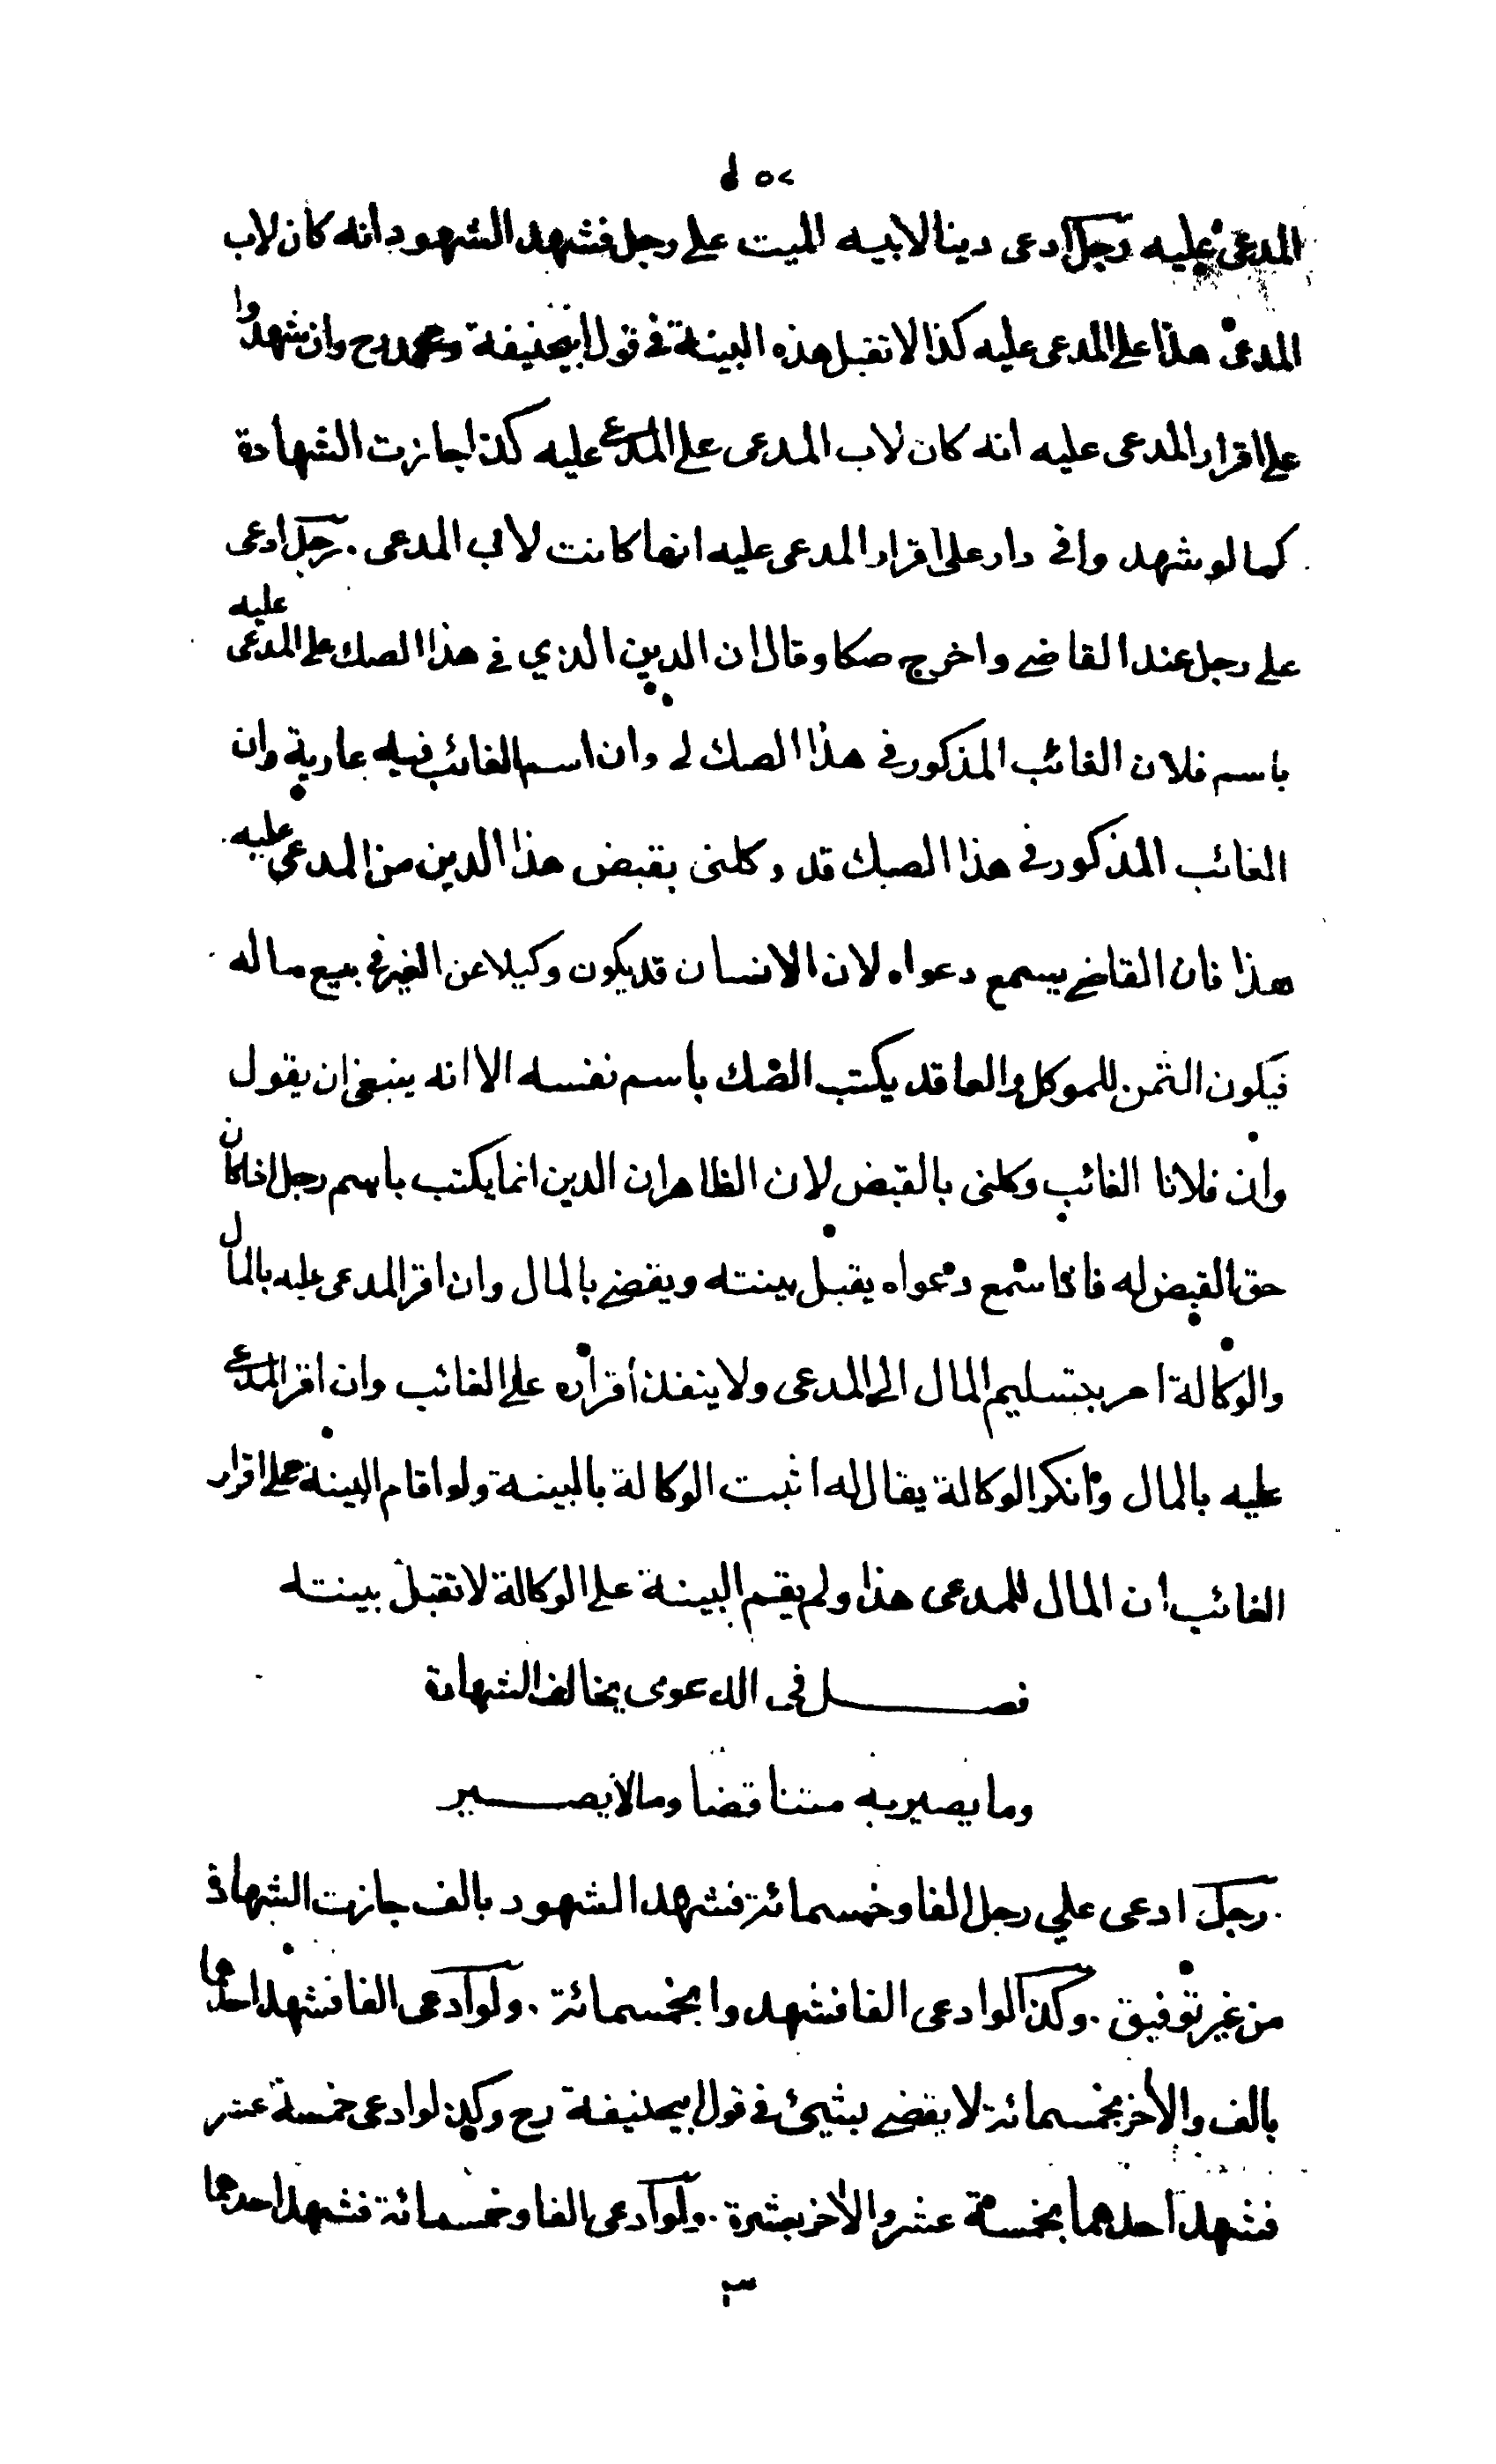 المدعى عليه رجل ادعى دينا لابيه الميت على رجل فشهد الشهود انه كان لاب
المدعى هذا على المدعى عليه كذا لا تقبل هذه البينة في قول ابيحنيفة ومحمد رح وان شهدوا
على اقرار المدعى عليه انه كان لاب المدعى على المدعى عليه كذا جازت الشهادة
كما لو شهدوا في دار على اقرار المدعى عليه انها كانت لاب المدعى . رجل ادعى
على رجل عند القاضي واخرج صكا وقال ان الدين الذي في هذا الصك على المدعى عليه
باسم فلان الغائب المذكور في هذا الصك لي وان اسم الغائب فيه عارية وان
الغائب المذكور في هذا الصك قد وكلني بقبض هذا الدين من المدعى عليه
هذا فان القاضي يسمع دعواه لان الانسان قد يكون وكيلا عن الغير في بيع ماله
فيكون الثمن للموكل والعاقد يكتب الصك باسم نفسه الا انه ينبغي ان يقول
وان فلانا الغائب وكلني بالقبض لان الظاهر ان الدين انما يكتب باسم رجل اذا كان
حق القبض له فاذا سمع دعواه يقبل بينته ويقضي بالمال وان اقر المدعى عليه بالمال
والوكالة امر بتسليم المال الى المدعى ولا ينفذ اقراره على الغائب وان اقر المدعى
عليه بالمال وانكر الوكالة يقال له اثبت الوكالة بالبينة ولو اقام البينة على اقرار
الغائب ان المال للمدعى هذا ولم يقم البينة على الوكالة لا تقبل بينته
فصل في الدعوى يخالف الشهادة
وما يصير به متناقضا وما لا يصير
رجل ادعى على رجل الفا وخمسمائة فشهد الشهود بالف جازت الشهادة
من غير توفيق . وكذا لو ادعى الفا فشهدوا بخمسمائة . ولو ادعى الفا فشهد احدهما
بالف والآخر بخمسمائة لا يقضي بشيئ في قول ابيحنيفة رح وكذا لو ادعى خمسة عشر
فشهد احدهما بخمسة عشر والآخر بعشرة . ولو ادعى الفا وخمسمائة فشهد احدهما